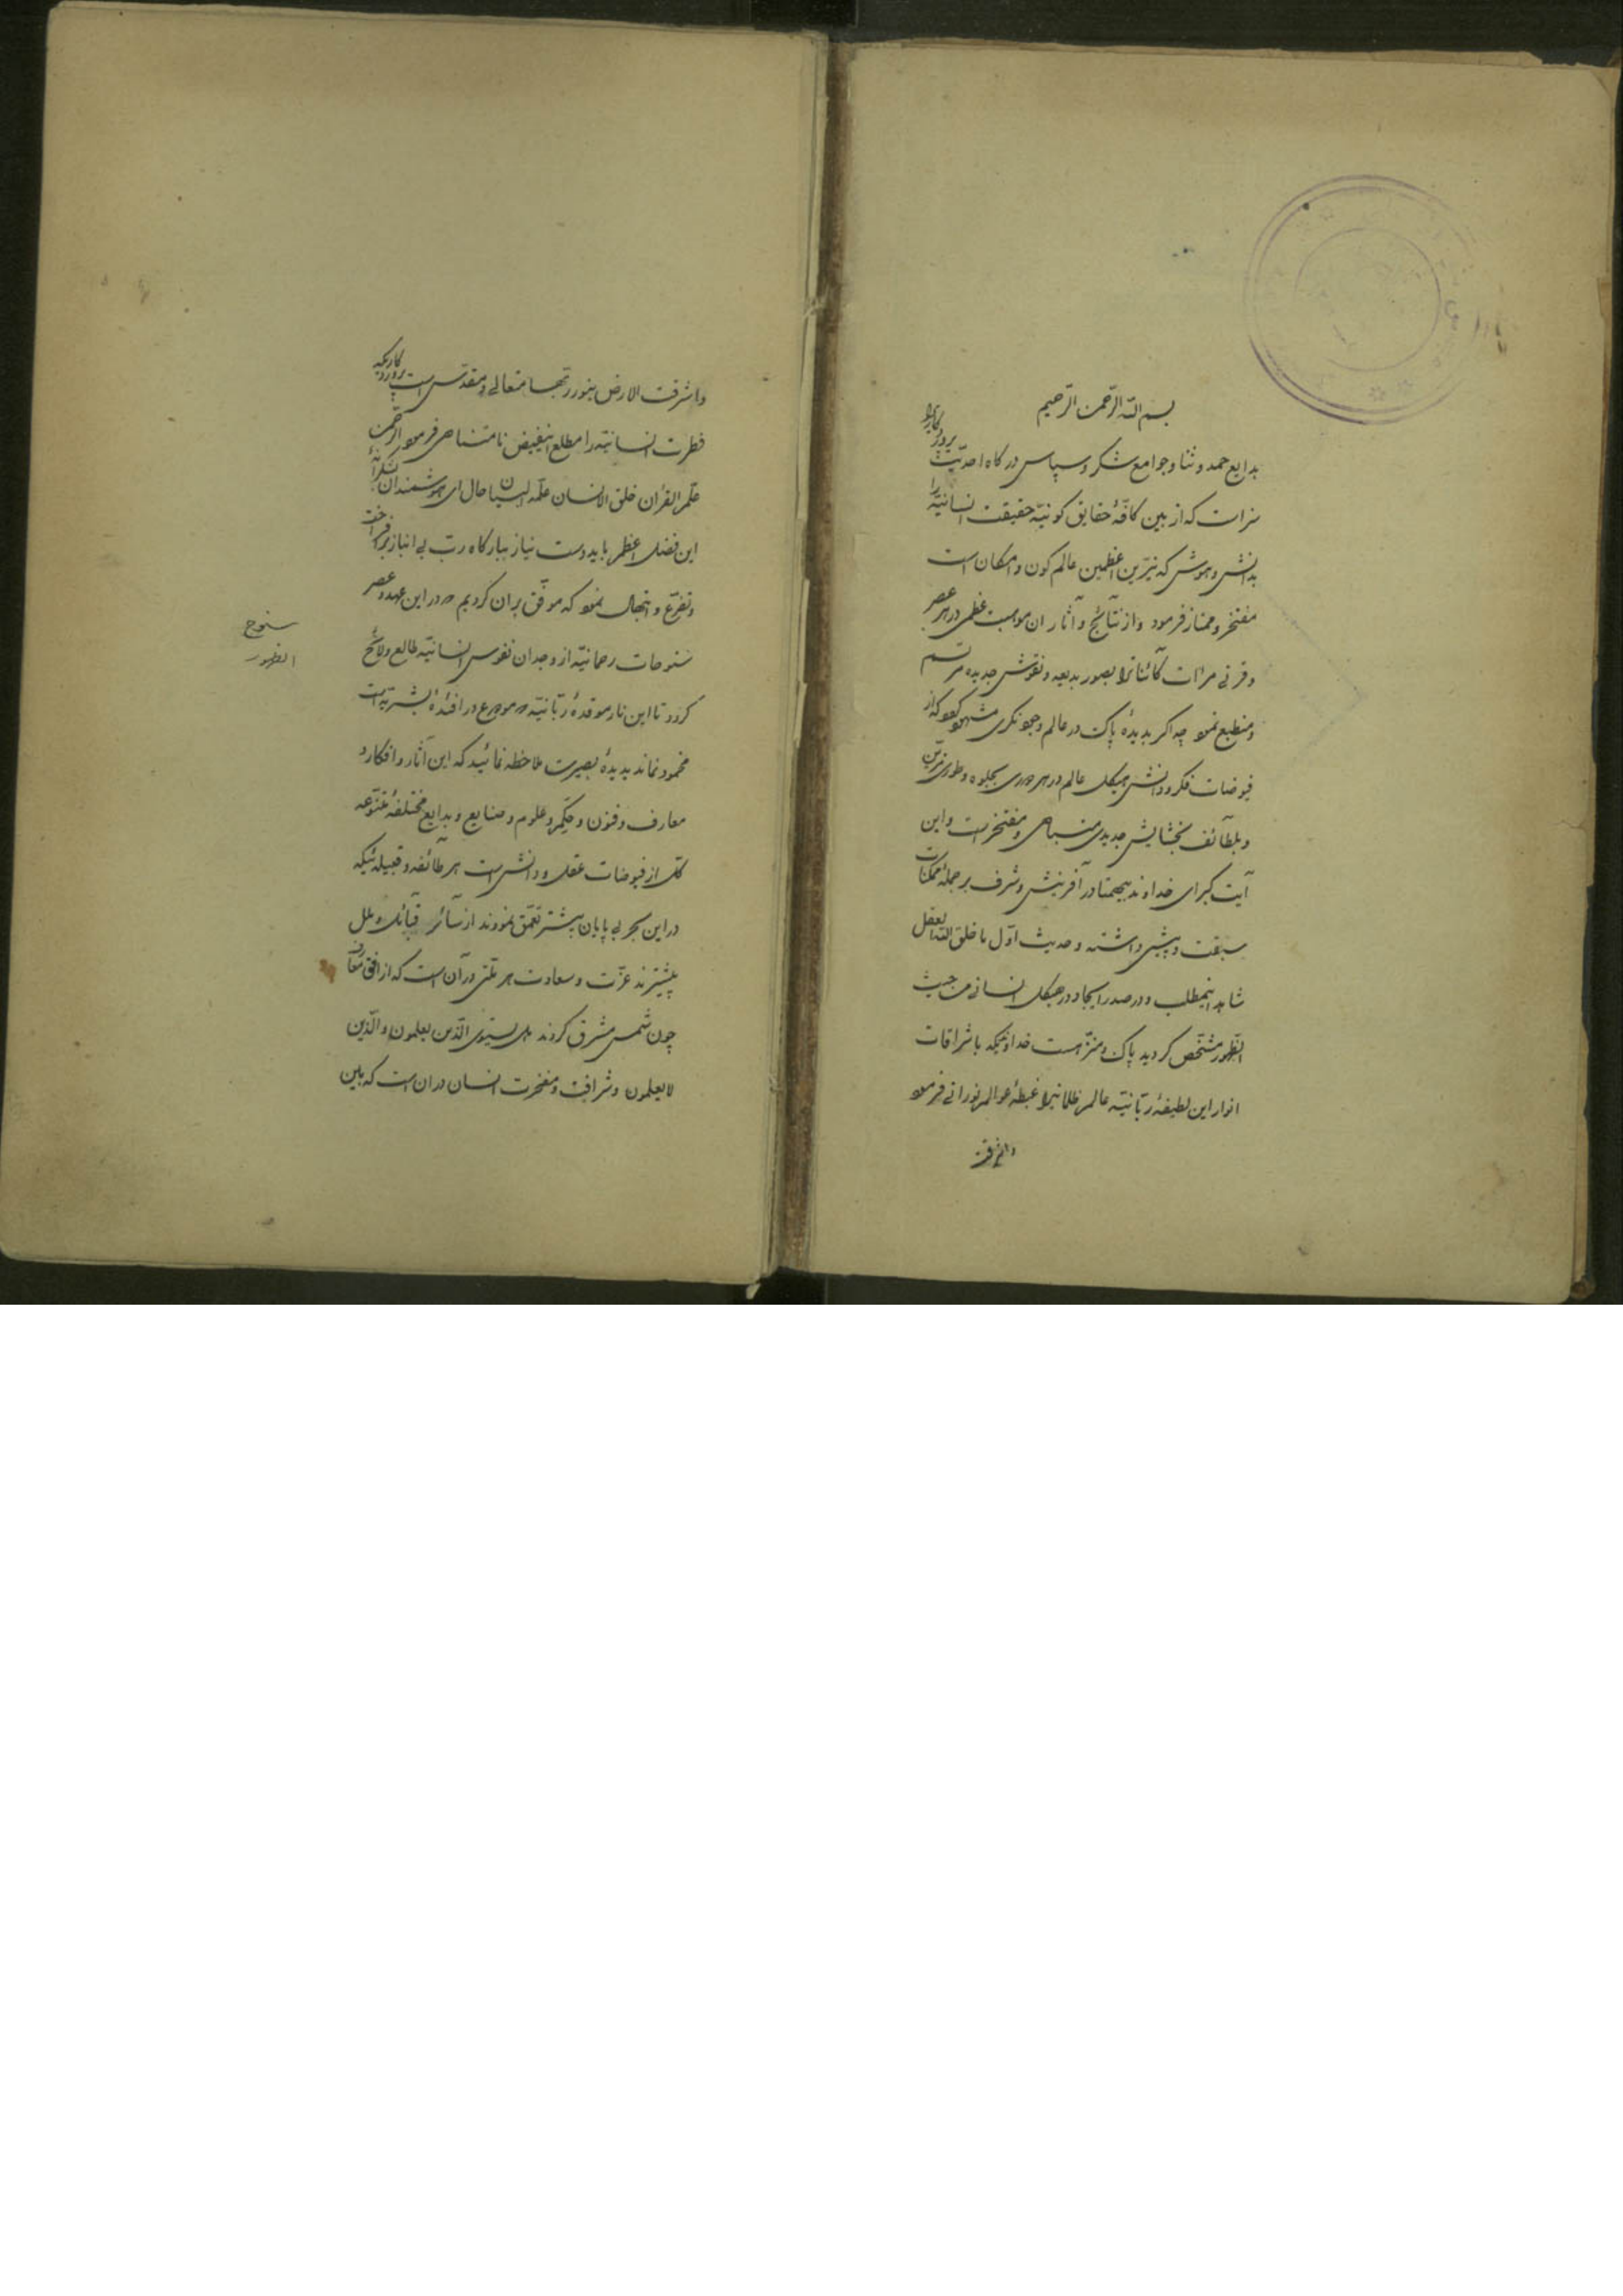 بسم اللّه الرّحمن الرّحیم
بدایع حمد و ثنا و جوامع شکر و سپاس درکاه احدیّت پروردکاریرا
سزاست که از بین کافّهٔ حقایق کونیّه حقیقت انسانیّه را
بدانش و هوش که نیّرین اعظمین عالم کون و امکان است
مفتخر و ممتاز فرمود و از نتآئج و آثار ان موهبت عظمی در هر عصر
و قرنی مرات کآئناترا بصور بدیعه و نقوش جدیده مرتسم
و منطبع نمود چه اکر بدیدهٔ پاک در عالم وجود نکری مشهود کردد که از
فیوضات فکر و دانش هیکل عالم در هر دوری بجلوه و طوری مزیّن
و بلطآئف بخشایش جدیدی متباهی و مفتخر است و این
آیت کبرای خداوند بیهمتا در آفرینش و شرف بر جملهٔ ممکنات
سبقت و پیشی داشته و حدیث اوّل ما خلق اللّه العقل
شاهد اینمطلب و در صدر ایجاد در هیکل انسانی من حیث
الظهور مشخّص کردید پاک و منزّه است خداوندیکه باشراقات
انوار این لطیفهٔ ربّانیّه عالم ظلمانیرا غبطهٔ عوالم نورانی فرمود
و اشرقت
و اشرقت الارض بنور ربّها متعالی و مقدّس است پروردکاریکه
فطرت انسانیّه را مطلع اینفیض نامتناهی فرمود الرّحمن
علّم القرآن خلق الانسان علّمه البیان حال ای هوشمندان بشکرانهٔ
این فضل اعظم باید دست نیاز ببارکاه ربّ بی انباز برافراخت
و تضرّع و ابتهال نمود که موفّق بران کردیم که در این عهد و عصر
سنوحات رحمانیّه از وجدان نفوس انسانیّه طالع و لائح
کردد تا این نار موقدهٔ ربّانیّه که مودع در افئدهٔ بشریّه است
مخمود نماند بدیدهٔ بصیرت ملاحظه نمائید که این آثار و افکار و
معارف و فنون و حِکَم و علوم و صنایع و بدایع مختلفهٔ متنوّعه
کلّ از فیوضات عقل و دانش است هر طآئفه و قبیله ئیکه
در این بحر بی پایان بیشتر تعمّق نمودند از سآئر قبآئل و ملل
پیشترند عزّت و سعادت هر ملّتی در آن است که از افق معارف
چون شمس مشرق کردند هل یستوی الّذین یعلمون و الّذین
لا یعلمون و شرافت و مفخرت انسان در ان است که بین
سنوح
الظهور